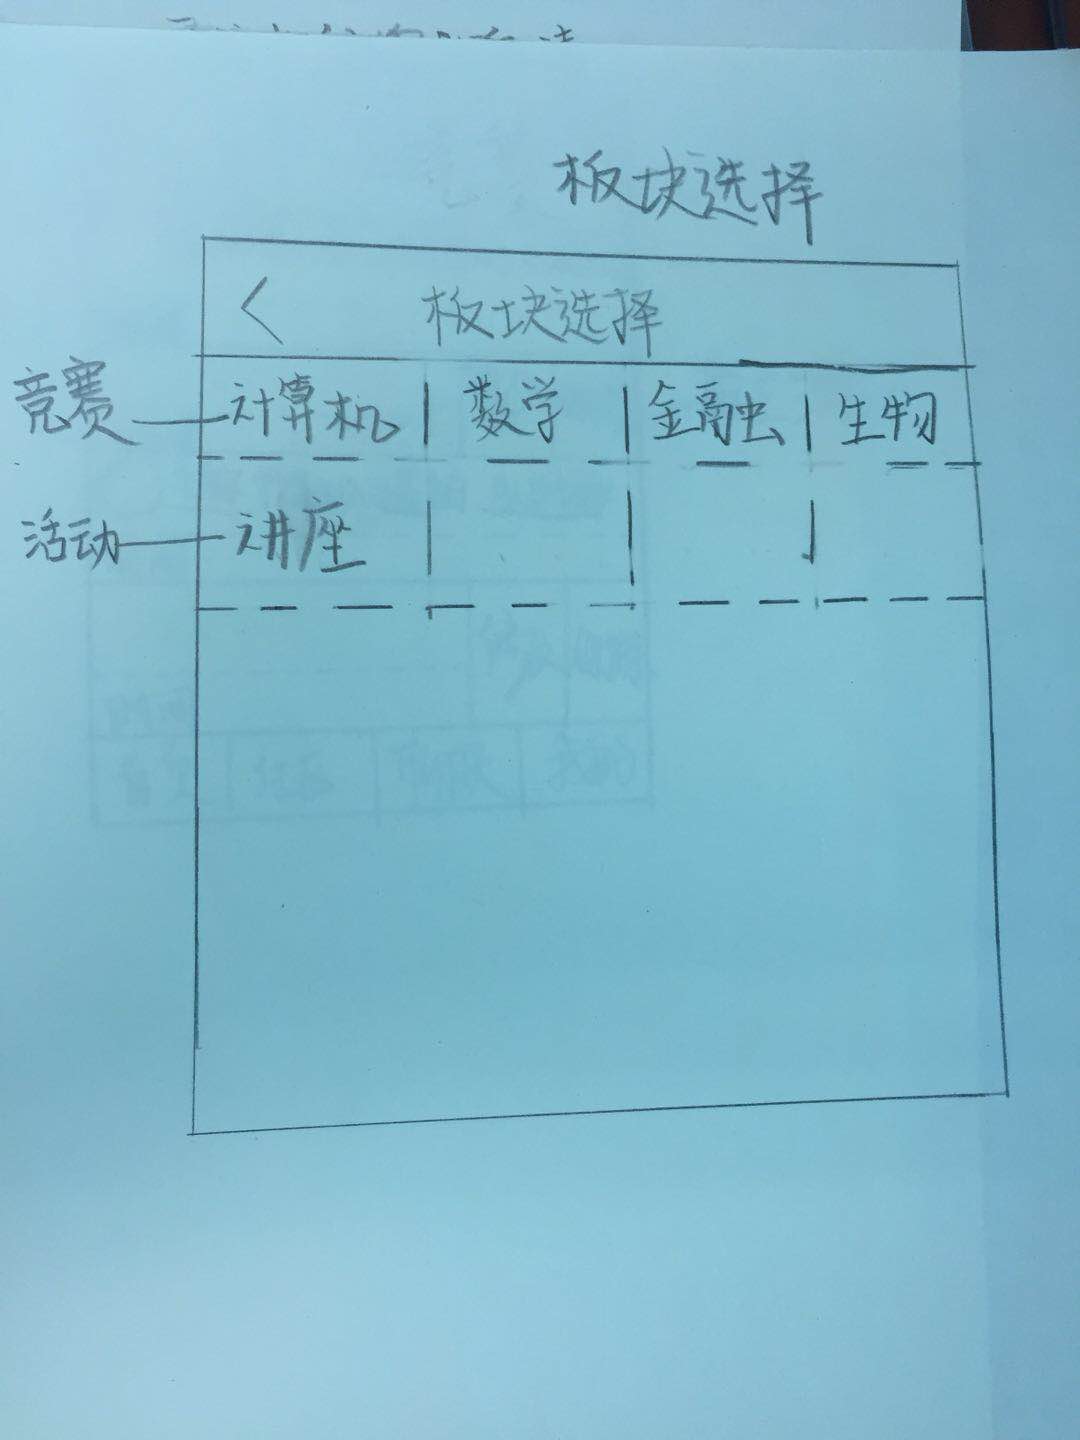 板块选择
< 板块选择
竞赛 计算机 数学 金融 生物
活动 讲座